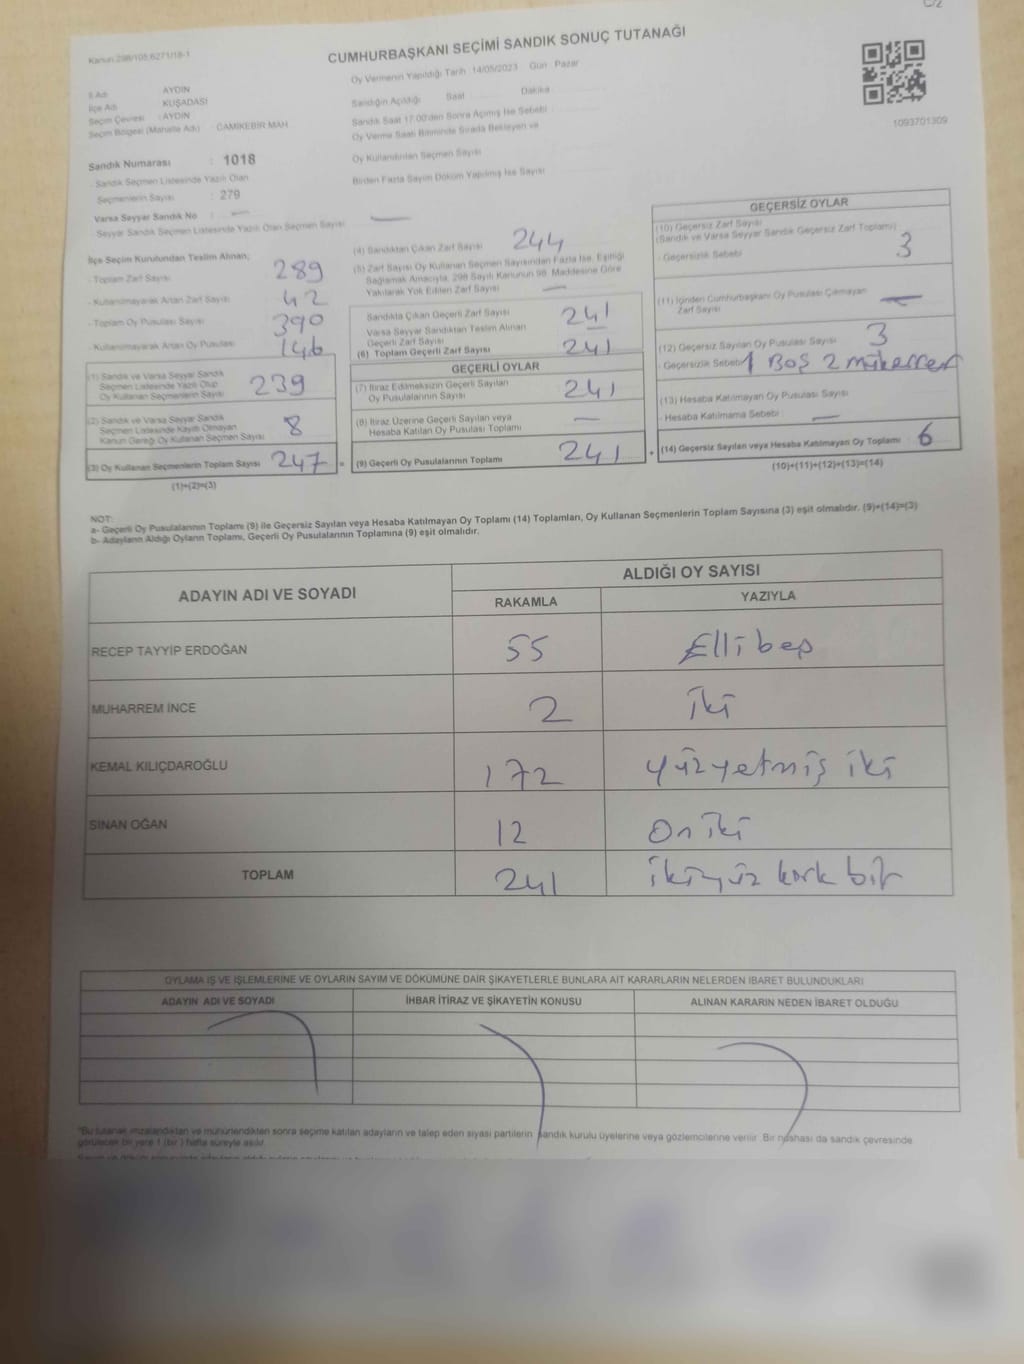 C/2
Kanun 298/105;6271/18-1
CUMHURBAŞKANI SEÇİMİ SANDIK SONUÇ TUTANAĞI
Oy Vermenin Yapıldığı Tarih :14/05/2023 Gün : Pazar
İl Adı : AYDIN
İlçe Adı : KUŞADASI
Seçim Çevresi : AYDIN
Seçim Bölgesi (Mahalle Adı) : CAMİKEBİR MAH.
Sandığın Açıldığı Saat Dakika
Sandık Saat 17:00'den Sonra Açılmış İse Sebebi :
Oy Verme Saati Bitiminde Sırada Bekleyen ve
Oy Kullandırılan Seçmen Sayısı
Birden Fazla Sayım Döküm Yapılmış İse Sayısı
1093701309
Sandık Numarası : 1018
- Sandık Seçmen Listesinde Yazılı Olan
Seçmenlerin Sayısı : 279
Varsa Seyyar Sandık No : —
- Seyyar Sandık Seçmen Listesinde Yazılı Olan Seçmen Sayısı : —
İlçe Seçim Kurulundan Teslim Alınan;
- Toplam Zarf Sayısı 289
- Kullanılmayarak Artan Zarf Sayısı 42
- Toplam Oy Pusulası Sayısı 390
- Kullanılmayarak Artan Oy Pusulası 146
(1) Sandık ve Varsa Seyyar Sandık
Seçmen Listesinde Yazılı Olup
Oy Kullanan Seçmenlerin Sayısı 239
(2) Sandık ve Varsa Seyyar Sandık
Seçmen Listesinde Kayıtlı Olmayan
Kanun Gereği Oy Kullanan Seçmen Sayısı 8
(3) Oy Kullanan Seçmenlerin Toplam Sayısı 247 =
(1)+(2)=(3)
(4) Sandıktan Çıkan Zarf Sayısı 244
(5) Zarf Sayısı Oy Kullanan Seçmen Sayısından Fazla İse, Eşitliği
Sağlamak Amacıyla, 298 Sayılı Kanunun 98. Maddesine Göre
Yakılarak Yok Edilen Zarf Sayısı —
Sandıkta Çıkan Geçerli Zarf Sayısı 241
Varsa Seyyar Sandıktan Teslim Alınan
Geçerli Zarf Sayısı —
(6) Toplam Geçerli Zarf Sayısı 241
GEÇERLİ OYLAR
(7) İtiraz Edilmeksizin Geçerli Sayılan
Oy Pusulalarının Sayısı 241
(8) İtiraz Üzerine Geçerli Sayılan veya
Hesaba Katılan Oy Pusulası Toplamı —
(9) Geçerli Oy Pusulalarının Toplamı 241 +
GEÇERSİZ OYLAR
(10) Geçersiz Zarf Sayısı
(Sandık ve Varsa Seyyar Sandık Geçersiz Zarf Toplamı)
- Geçersizlik Sebebi 3
(11) İçinden Cumhurbaşkanı Oy Pusulası Çıkmayan
Zarf Sayısı —
(12) Geçersiz Sayılan Oy Pusulası Sayısı 3
- Geçersizlik Sebebi 1 Boş 2 mükerrer
(13) Hesaba Katılmayan Oy Pusulası Sayısı
- Hesaba Katılmama Sebebi : —
(14) Geçersiz Sayılan veya Hesaba Katılmayan Oy Toplamı 6
(10)+(11)+(12)+(13)=(14)
NOT:
a- Geçerli Oy Pusulalarının Toplamı (9) ile Geçersiz Sayılan veya Hesaba Katılmayan Oy Toplamı (14) Toplamları, Oy Kullanan Seçmenlerin Toplam Sayısına (3) eşit olmalıdır. (9)+(14)=(3)
b- Adayların Aldığı Oyların Toplamı, Geçerli Oy Pusulalarının Toplamına (9) eşit olmalıdır.
ADAYIN ADI VE SOYADI
ALDIĞI OY SAYISI
RAKAMLA YAZIYLA
RECEP TAYYİP ERDOĞAN 55 Ellibeş
MUHARREM İNCE 2 İki
KEMAL KILIÇDAROĞLU 172 yüzyetmiş iki
SİNAN OĞAN 12 On iki
TOPLAM 241 ikiyüz kırk bir
OYLAMA İŞ VE İŞLEMLERİNE VE OYLARIN SAYIM VE DÖKÜMÜNE DAİR ŞİKAYETLERLE BUNLARA AİT KARARLARIN NELERDEN İBARET BULUNDUKLARI
ADAYIN ADI VE SOYADI İHBAR İTİRAZ VE ŞİKAYETİN KONUSU ALINAN KARARIN NEDEN İBARET OLDUĞU
*Bu tutanak imzalandıktan ve mühürlendikten sonra seçime katılan adayların ve talep eden siyasi partilerin sandık kurulu üyelerine veya gözlemcilerine verilir. Bir nüshası da sandık çevresinde
görülecek bir yere 1 (bir) hafta süreyle asılır.